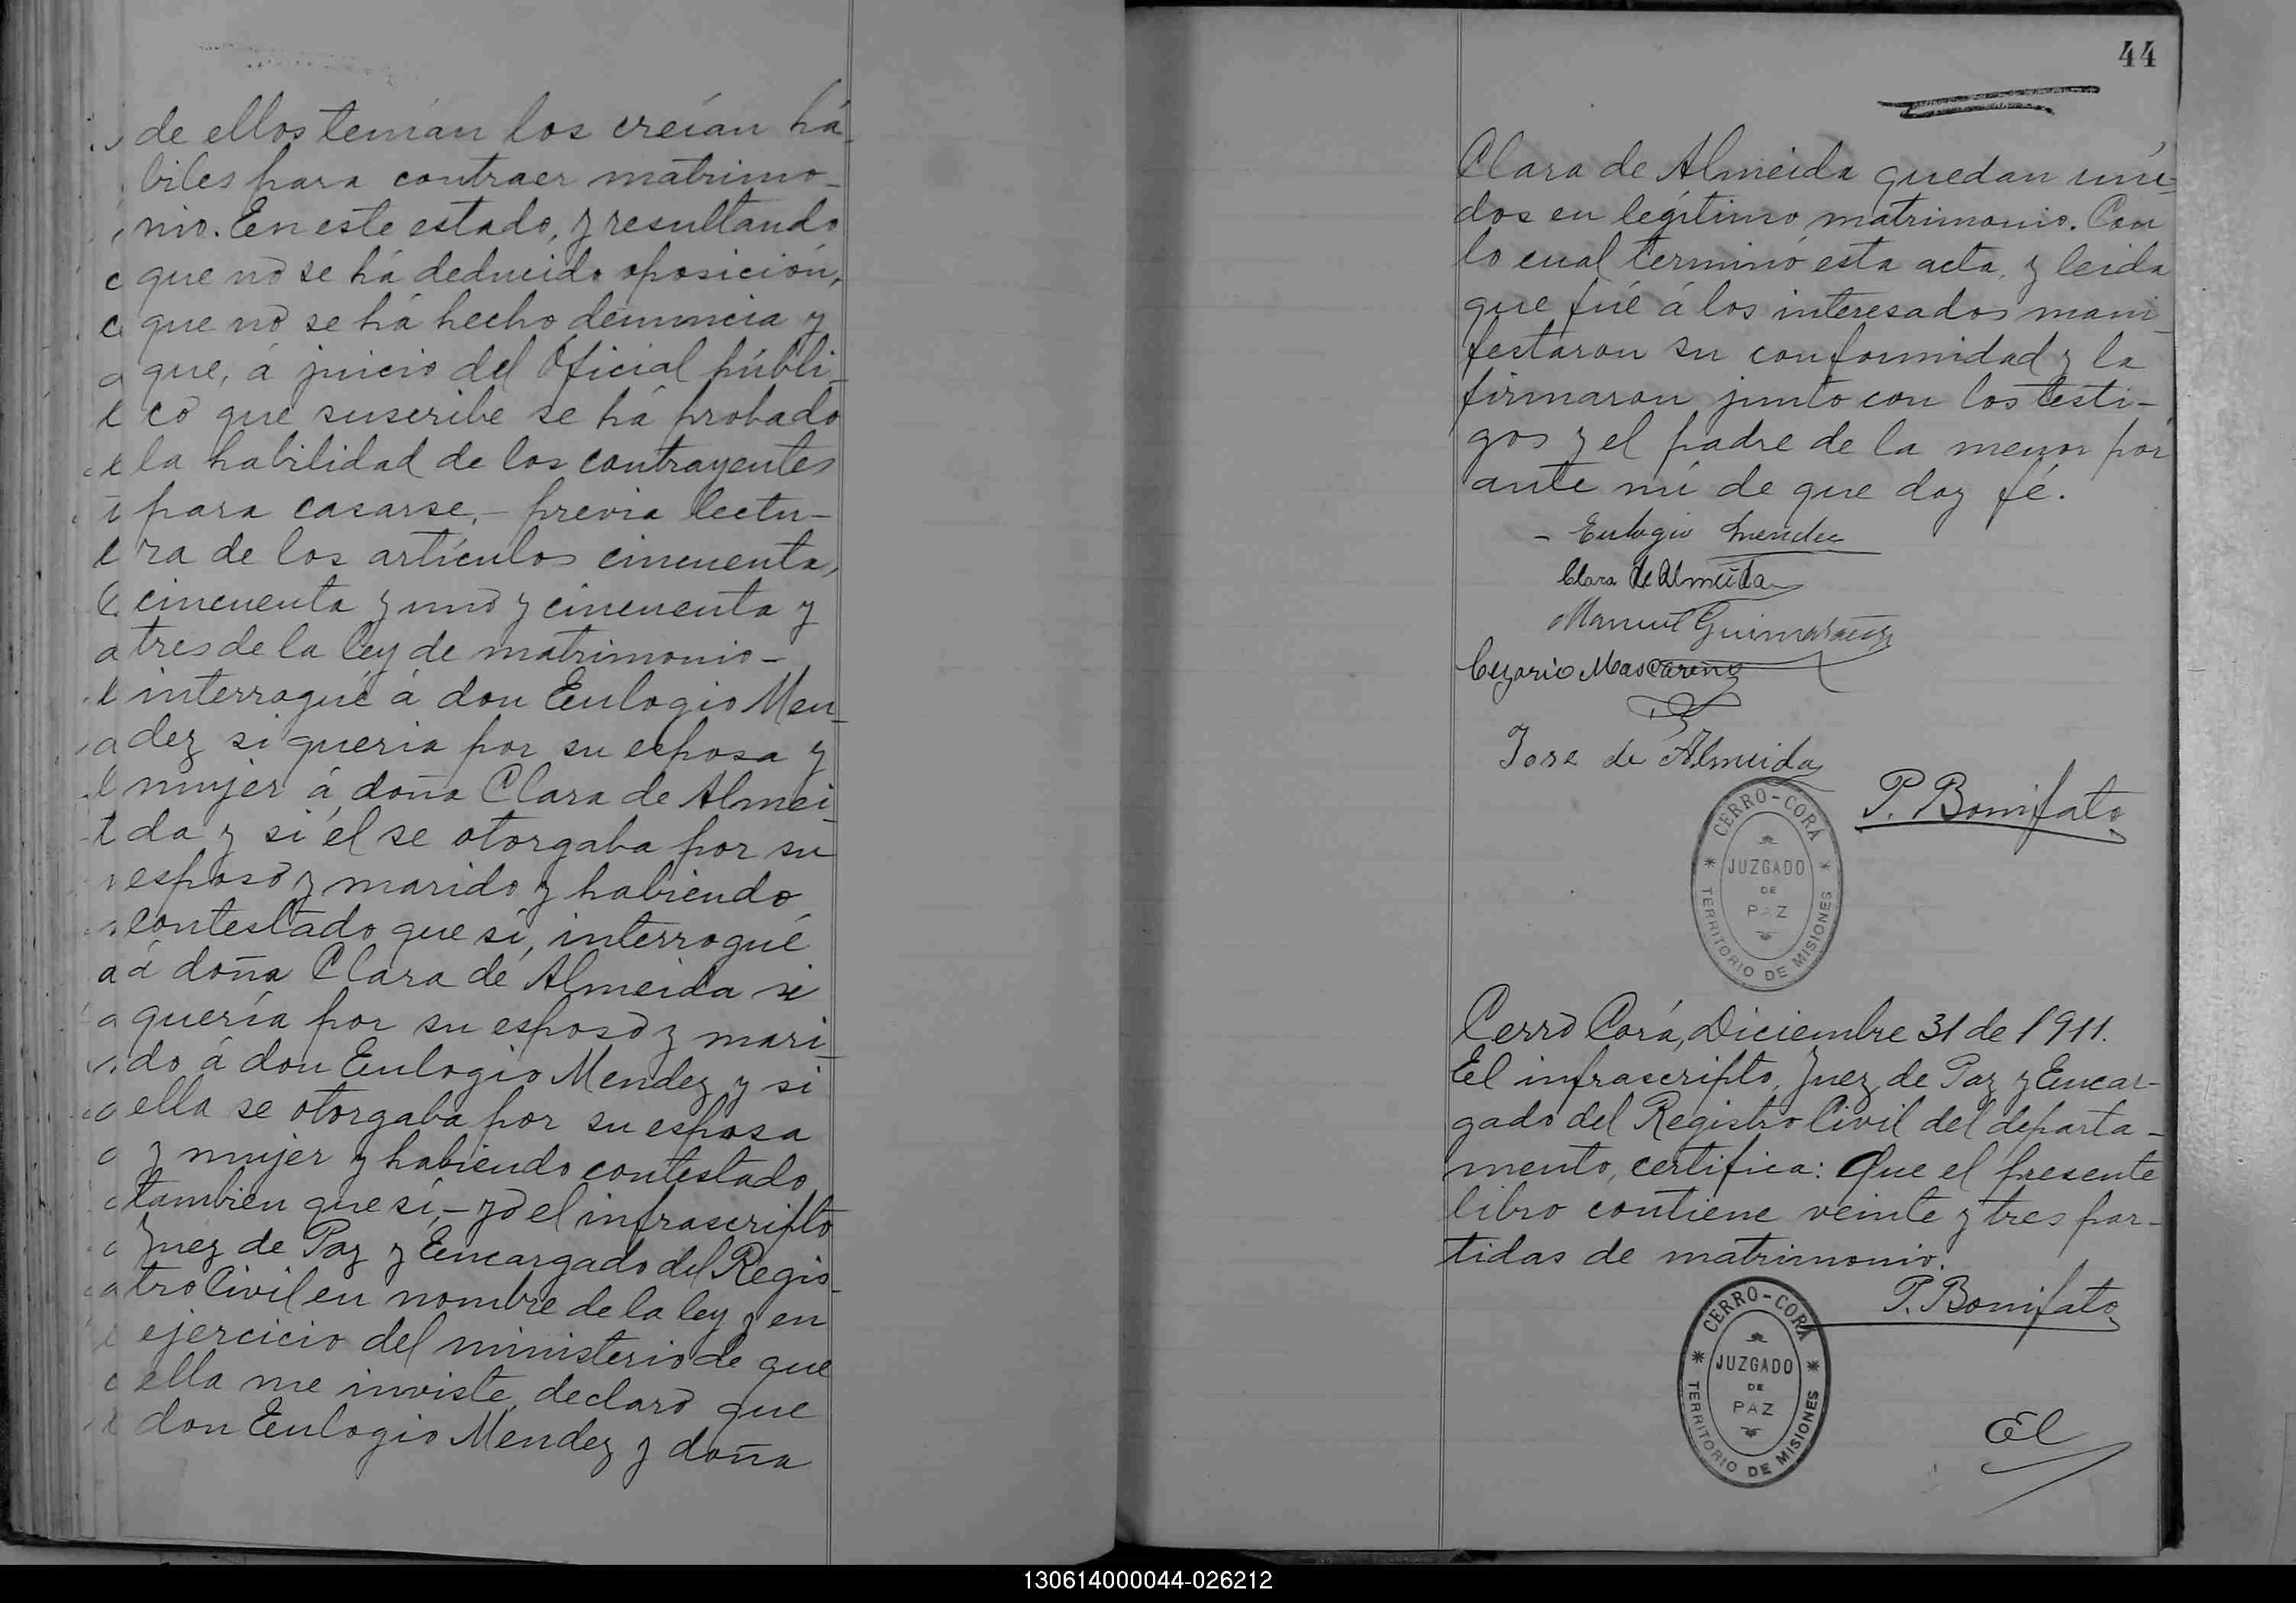 de ellos tenían los creían há-
biles para contraer matrimo-
nio. En este estado, y resultando
que no se há deducido oposición,
que no se há hecho denuncia y
que, á juicio del Oficial públi-
co que suscribe se há probado
la habilidad de los contrayentes
para casarse, - previa lectu-
ra de los artículos cincuenta,
cincuenta y uno y cincuenta y
tres de la ley de matrimonio -
interrogué á don Eulogio Men-
dez si queria por su esposa y
mujer á doña Clara de Almei-
da y si él se otorgaba por su
esposo y marido y habiendo
contestado que sí, interrogué
á doña Clara de Almeida si
quería por su esposo y mari-
do á don Eulogio Mendez y si
ella se otorgaba por su esposa
y mujer y habiendo contestado
tambien que sí, - yo el infrascripto
Juez de Paz y Encargado del Regis-
tro Civil en nombre de la ley y en
ejercicio del ministerio de que
ella me inviste, declaro que
don Eulogio Mendez y doña
44
Clara de Almeida quedan uni-
dos en legítimo matrimonio. Con
lo cual terminó esta acta, y leida
que fué á los interesados mani-
festaron su conformidad y la
firmaron junto con los testi-
gos y el padre de la menor por
ante mi de que doy fé.
- Eulogio Mendez
Clara de Almeida
Manuel Guimaraens
Cezario Mascareño
Jose de Almeida
P. Bonifato
CERRO-CORÁ
JUZGADO
DE
PAZ
TERRITORIO DE MISIONES
Cerro Corá, Diciembre 31 de 1911.
El infrascripto, Juez de Paz y Encar-
gado del Registro Civil del departa-
mento, certifica: Que el presente
libro contiene veinte y tres par-
tidas de matrimonio.
P. Bonifato
CERRO-CORÁ
JUZGADO
DE
PAZ
TERRITORIO DE MISIONES
El
130614000044-026212